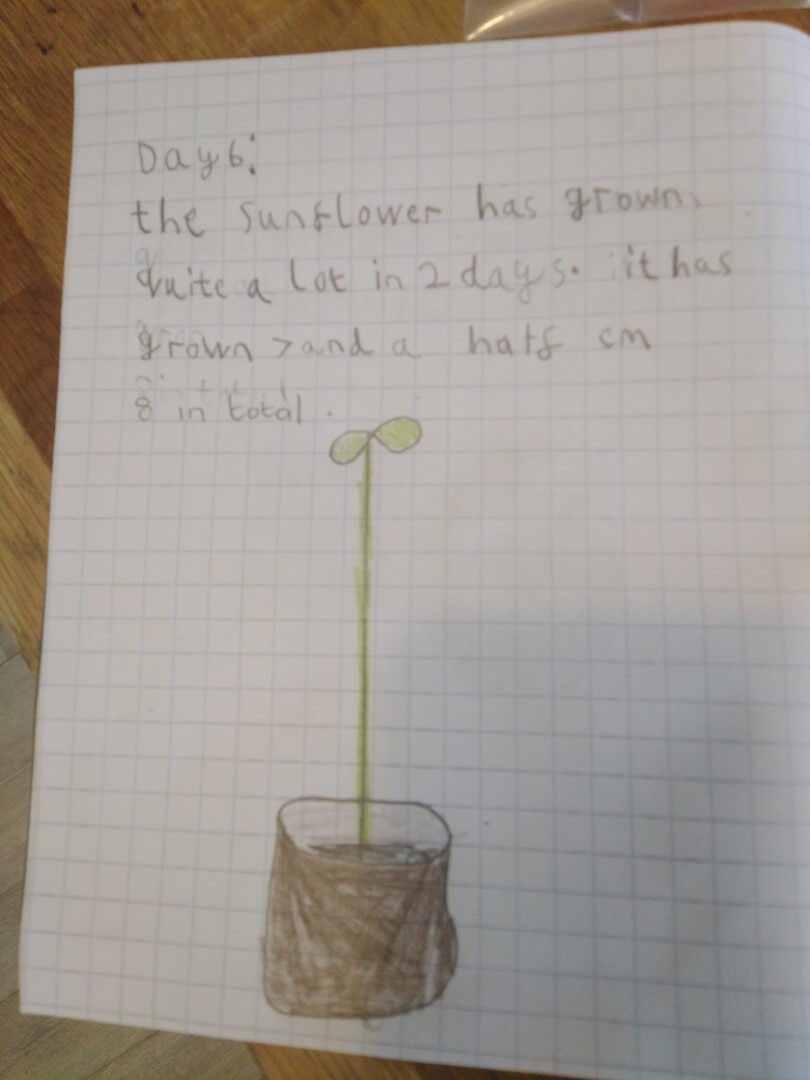 Day 6:
the sunflower has grown
quite a lot in 2 days. it has
grown 7 and a half cm
8 in total.